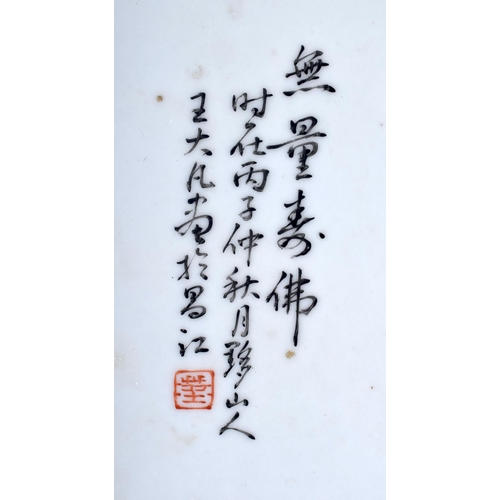 無量壽佛
时在丙子仲秋月黟山人
王大凡畫於昌江